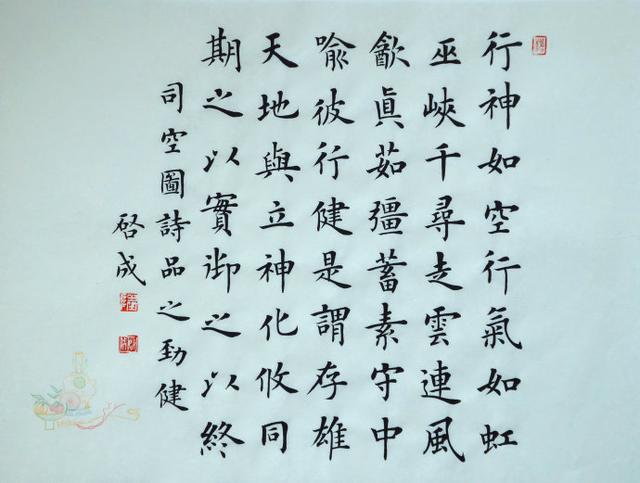 行神如空行氣如虹
巫峽千尋走雲連風
㱃眞茹彊蓄素守中
喻彼行健是謂存雄
天地與立神化攸同
期之以實御之以終
司空圖詩品之勁健
啓成